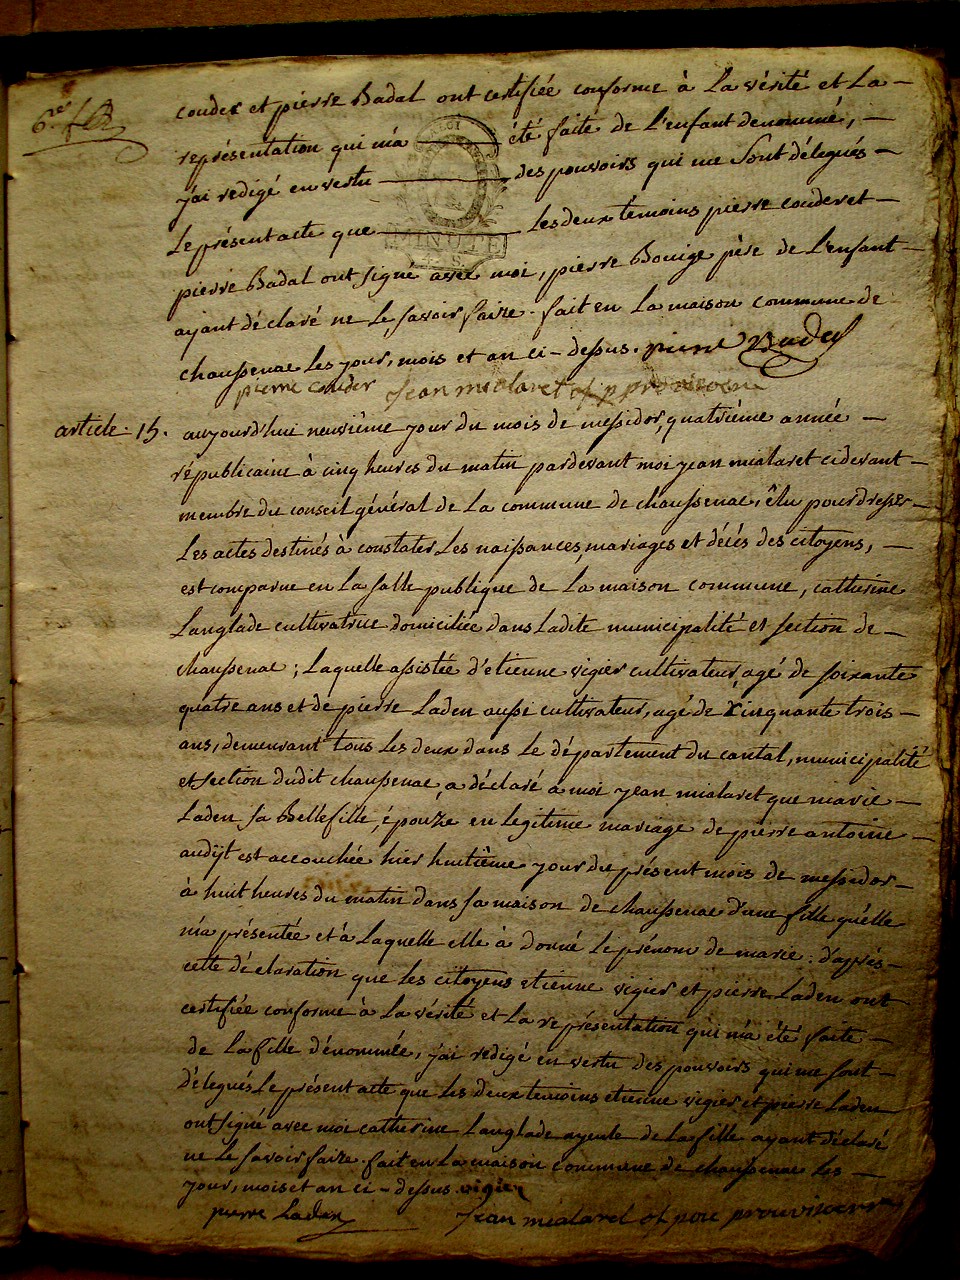 6e
couder et pierre Badal ont certifiée conforme à La vérité et La –
représentation qui m'a été faite de L'enfant denommé, –
j'ai redigé en vertu des pouvoirs qui me sont délegués –
Le présent acte que Les deux témoins pierre couder et –
MINUTE
pierre Badal ont signé avec moi, pierre Bouige père de L'enfant –
ayant déclaré ne Le savoir faire. fait en La maison commune de
chaussenac Les jour, mois et an ci-dessus. pierre Badal
pierre couder Jean mialaret
article. 15. aujourd'hui neuvième jour du mois de messidor, quatrième année –
républicaine à cinq heures du matin pardevant moi jean mialaret cidevant –
membre du conseil général de La commune de chaussenac, élu pour dresser –
Les actes destinés à constater Les naissances, mariages et décés des citoyens, –
est comparue en La salle publique de La maison commune, catherine
Langlade cultivatrice domiciliée dans Ladite municipalité et section de –
chaussenac; Laquelle assistée d'etienne vigier cultivateur, agé de soixante
quatre ans et de pierre Laden aussi cultivateur, agé de cinquante trois –
ans, demeurant tous Les deux dans Le département du cantal, municipalité
et section dudit chaussenac, a déclaré à moi jean mialaret que marie –
Laden sa Bellefille, épouze en legitime mariage de pierre antoine –
audijt est accouchée hier huitième jour du présent mois de messidor –
à huit heures du matin dans sa maison de chaussenac d'une fille qu'elle
m'a présentée et à Laquelle elle à donné Le prénom de marie: d'après –
cette déclaration que Les citoyens etienne vigier et pierre Laden ont
certifiée conforme à La vérité et La représentation qui m'a été faite –
de La fille dénommée, j'ai redigé en vertu des pouvoirs qui me sont –
délegués Le présent acte que Les deux temoins etienne vigier et pierre Laden
ont signé avec moi catherine Langlade ayeule de La fille ayant déclaré
ne Le savoir faire. fait en La maison commune de chaussenac Les –
jour, mois et an ci-dessus. vigier
pierre Laden Jean mialaret